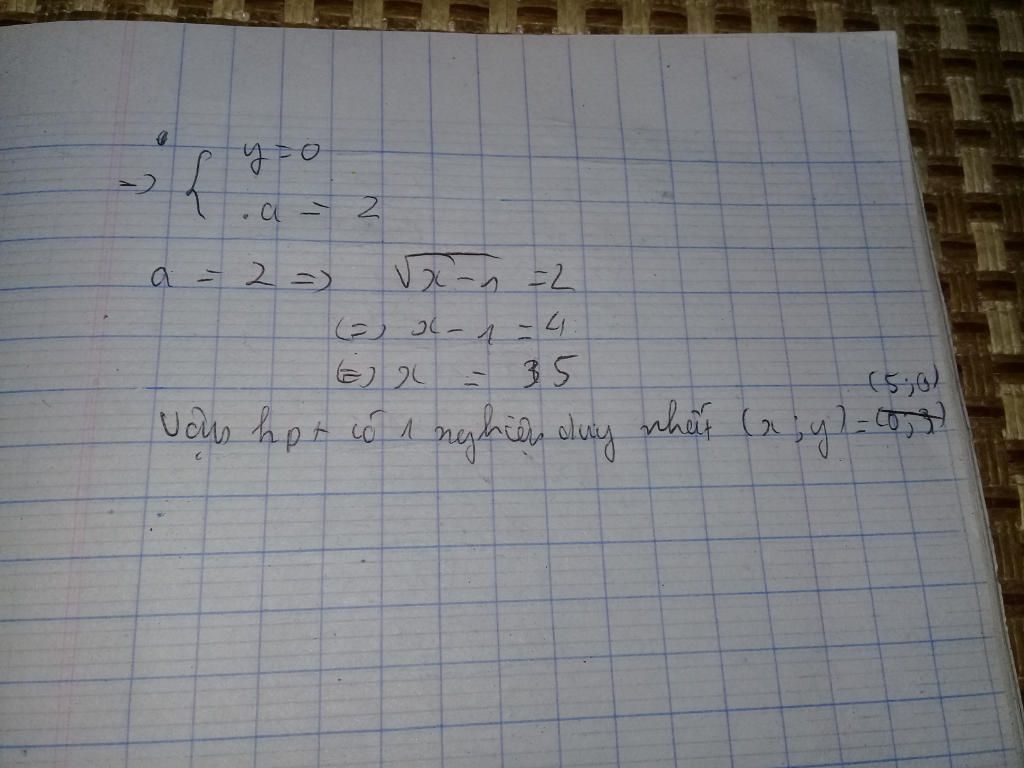 => { y = 0
. a = 2
a = 2 => √x-1 = 2
(=) x - 1 = 4
(=) x = 5
Vậy hpt có 1 nghiệm duy nhất (x ; y) = (5 ; 0)